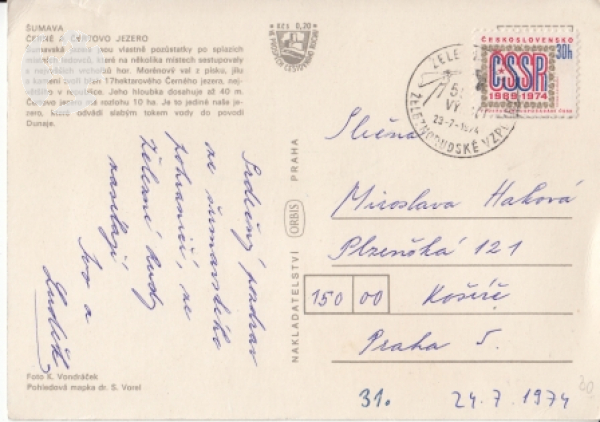 ŠUMAVA
ČERNÉ A ČERTOVO JEZERO
Šumavská jezera jsou vlastně pozůstatky po splazích
místních ledovců, které na několika místech sestupovaly
s nejvyšších vrcholů hor. Morénový val z písku, jílu
a kamení tvoří břeh 17hektarového Černého jezera, nej-
většího v republice. Jeho hloubka dosahuje až 40 m.
Čertovo jezero má rozlohu 10 ha. Je to jediné naše je-
zero, které odvádí slabým tokem vody do povodí
Dunaje.
Srdečný pozdrav
ze šumavského
pohraničí, ze
Železné Rudy
zasílají
Ivo a
Luděk
Foto K. Vondráček
Pohledová mapka dr. S. Vorel
Kčs 0,30
NAKLADATELSTVÍ ORBIS PRAHA
ČESKOSLOVENSKO
30h
ČSSR
1969 1974
23-7-1974
ŽELEZNORUDSKÉ
Slečna
Miroslava Haková
Plzeňská 121
150 00 Košíře
Praha 5.
31. 24.7.1974
20